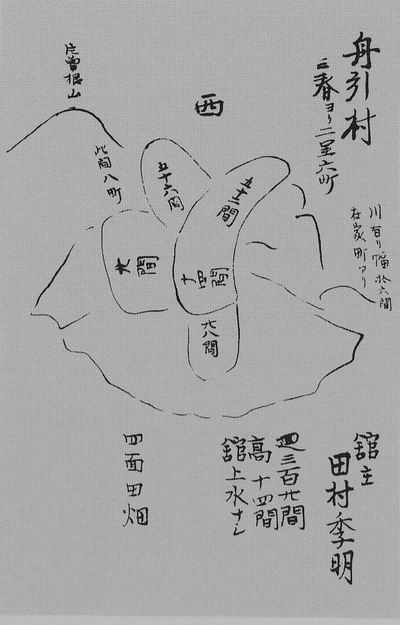 舟引村
三春ヨリ二里六町
川有リ幅拾六間
在家町アリ
西
片曽根山
此間八町
五十六間
五十二間
十四間
廿八間
舘主
田村季明
廻三百廿間
高十四間
舘上水ナシ
四面田畑